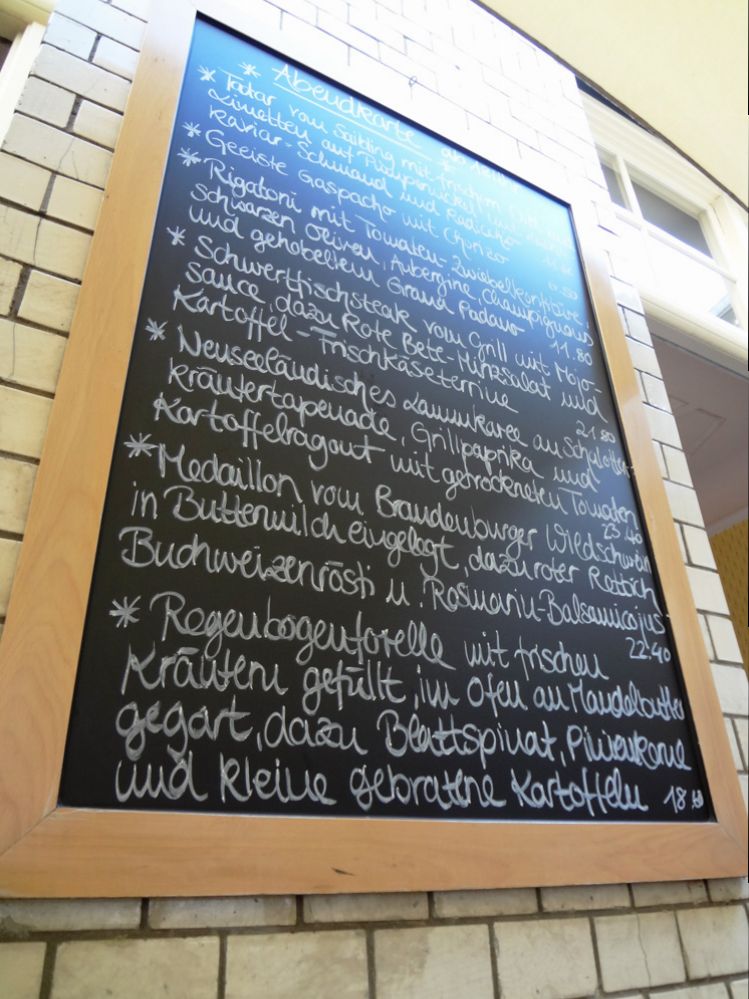 * Abendkarte ab 18 Uhr
* Tatar vom Saibling mit frischem
Limetten auf Pumpernickel
Kaviar-Schmand und Radieschen
* Geeiste Gaspacho mit Chorizo
* Rigatoni mit Tomaten-Zwiebelkonfitüre,
schwarzen Oliven, Aubergine Champignons
und gehobeltem Grana Padano 11.80
* Schwertfischsteak vom Grill mit Mojo-
sauce, dazu Rote Bete-Minzsalat und
Kartoffel-Frischkäseterrine 21.80
* Neuseeländisches Lammkaree an Schalotten-
kräutertapenade, Grillpaprika und
Kartoffelragout mit getrockneten Tomaten
23.40
* Medaillon vom Brandenburger Wildschwein
in Buttermilch eingelegt, dazu roter Rettich
Buchweizenrösti u. Rosmarin-Balsamicojus
22.40
* Regenbogenforelle mit frischen
Kräutern gefüllt, im Ofen an Mandelbutter
gegart, dazu Blattspinat, Pinienkerne
und kleine gebratene Kartoffeln 18